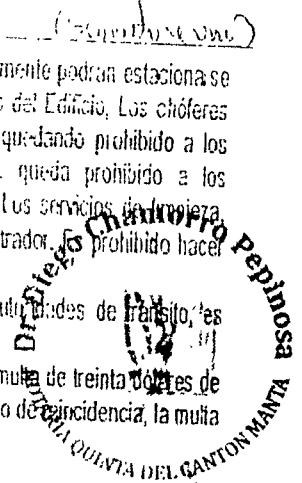 mente podran estacionarse
del Edificio, Los chóferes
quedando prohibido a los
queda prohibido a los
Los servicios de limpieza,
trador. Es prohibido hacer
autoridades de transito, es
multa de treinta dólares de
o de reincidencia, la multa
Dr. Diego Chamorro Pepinosa
NOTARIA QUINTA DEL CANTON MANTA